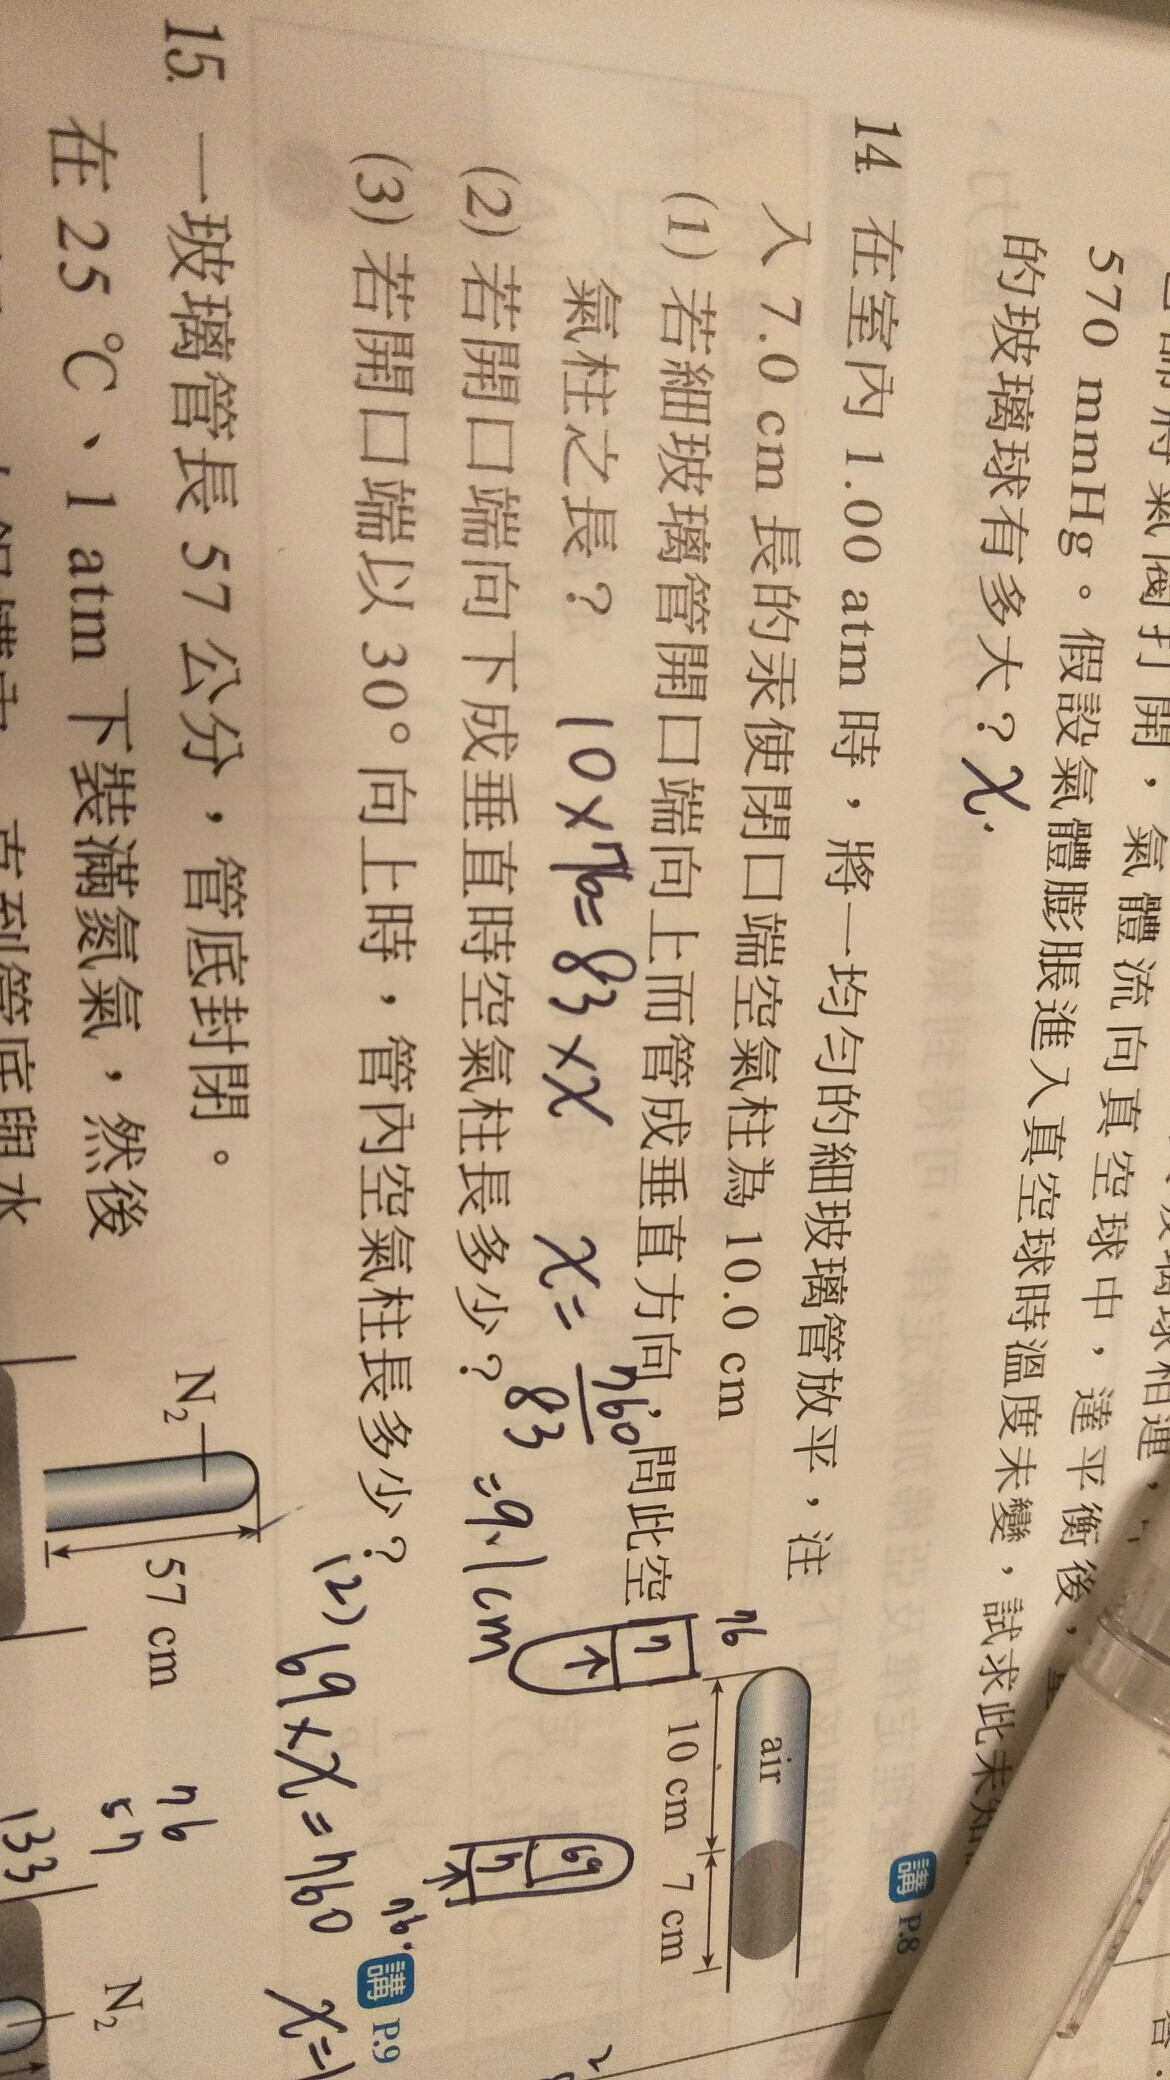 570 mmHg。假設氣體膨脹進入真空球時溫度未變,試求此未知
的玻璃球有多大? x.
講 P.8
14. 在室內 1.00 atm 時,將一均勻的細玻璃管放平,注
入 7.0 cm 長的汞使閉口端空氣柱為 10.0 cm
(1) 若細玻璃管開口端向上而管成垂直方向,問此空
氣柱之長?
10×76=83×x x=760/83=9.1cm
(2) 若開口端向下成垂直時空氣柱長多少?
(3) 若開口端以 30° 向上時,管內空氣柱長多少?
air
10 cm
7 cm
76
7
69
7
76.
(2) 69×x=760 x=1
講 P.9
15. 一玻璃管長 57 公分,管底封閉。
在 25 ℃、1 atm 下裝滿氮氣,然後
N2
57 cm
76
57
133
N2